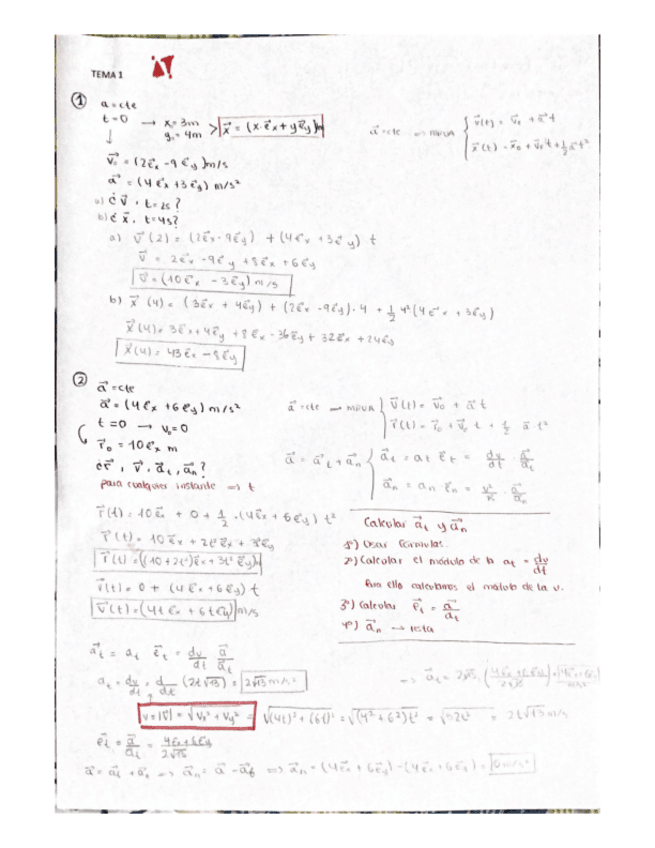 TEMA 1
① a = cte
t = 0 → x₀ = 3m
y₀ = 4m > x⃗ = (x·e⃗x + y e⃗y)m
a⃗ = cte → MRUA { v⃗(t) = v⃗₀ + a⃗ t
x⃗(t) = x⃗₀ + v⃗₀ t + 1/2 a⃗ t²
v⃗₀ = (2e⃗x - 9e⃗y) m/s
a⃗ = (4e⃗x + 3e⃗y) m/s²
a) ¿ v⃗, t = 2s?
b) ¿ x⃗, t = 4s?
a) v⃗(2) = (2e⃗x - 9e⃗y) + (4e⃗x + 3e⃗y) t
v⃗ = 2e⃗x - 9e⃗y + 8e⃗x + 6e⃗y
v⃗ = (10e⃗x - 3e⃗y) m/s
b) x⃗(4) = (3e⃗x + 4e⃗y) + (2e⃗x - 9e⃗y)·4 + 1/2 4²(4e⃗x + 3e⃗y)
x⃗(4) = 3e⃗x + 4e⃗y + 8e⃗x - 36e⃗y + 32e⃗x + 24e⃗y
x⃗(4) = 43e⃗x - 8e⃗y
② a⃗ = cte
a⃗ = (4e⃗x + 6e⃗y) m/s²
t = 0 → v₀ = 0
r⃗₀ = 10e⃗x m
¿ r⃗, v⃗, a⃗t, a⃗n?
para cualquier instante ⇒ t
a⃗ = cte → MRUA { v⃗(t) = v⃗₀ + a⃗ t
r⃗(t) = r⃗₀ + v⃗₀ t + 1/2 a⃗·t²
a⃗ = a⃗t + a⃗n { a⃗t = at e⃗t = dv/dt · a⃗/at
a⃗n = an e⃗n = v²/R · a⃗/an
r⃗(t) = 10e⃗x + 0 + 1/2·(4e⃗x + 6e⃗y) t²
r⃗(t) = 10e⃗x + 2t²e⃗x + 3t²e⃗y
r⃗(t) = ((10 + 2t²)e⃗x + 3t² e⃗y)m
v⃗(t) = 0 + (4e⃗x + 6e⃗y) t
v⃗(t) = (4t e⃗x + 6t e⃗y) m/s
Calcular a⃗t y a⃗n
1º) Usar fórmulas.
2º) Calcular el módulo de la at = dv/dt
Para ello calculamos el módulo de la v.
3º) Calcular e⃗t = a⃗/at
4º) a⃗n → resta
a⃗t = at e⃗t = dv/dt a⃗/at
at = dv/dt = d/dt (2t√13) = 2√13 m/s²
⇒ a⃗t = 2√13 · (4e⃗x + 6e⃗y / 2√13) = (4e⃗x + 6e⃗y) m/s²
v = |v⃗| = √(vx² + vy²) = √((4t)² + (6t)²) = √((4² + 6²)t²) = √(52t²) = 2t√13 m/s
e⃗t = a⃗/at = 4e⃗x + 6e⃗y / 2√13
a⃗ = a⃗t + a⃗n ⇒ a⃗n = a⃗ - a⃗t ⇒ a⃗n = (4e⃗x + 6e⃗y) - (4e⃗x + 6e⃗y) = 0 m/s²